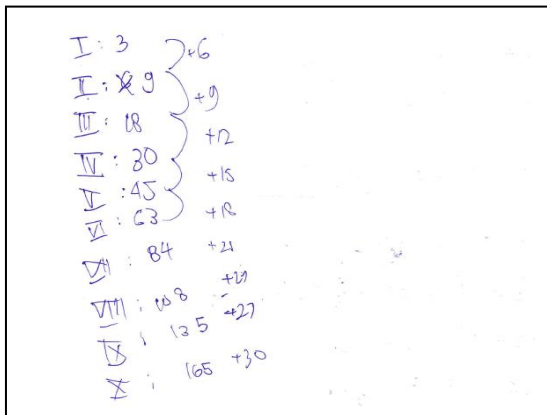 I : 3
+6
II : 9
+9
III : 18
+12
IV : 30
+15
V : 45
+18
VI : 63
VII : 84 +21
VIII : 108
IX : 135 +27
X : 165 +30